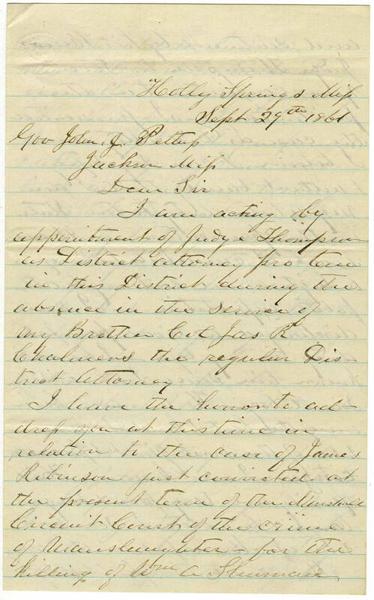 Holly Springs Miss
Sept 29th 1861
Gov John J. Pettus
Jackson Miss
Dear Sir
I am acting by
appointment of Judge Thompson
as District Attorney pro tem
in this District during the
absence in the service of
my Brother Col Jas R
Chalmers the regular Dis-
trict Attorney
I have the honor to ad-
dress you at this time in
relation to the case of James
Robinson just convicted at
the present term of the Marshall
Circuit Court of the crime
of Manslaughter - for the
killing of Wm A